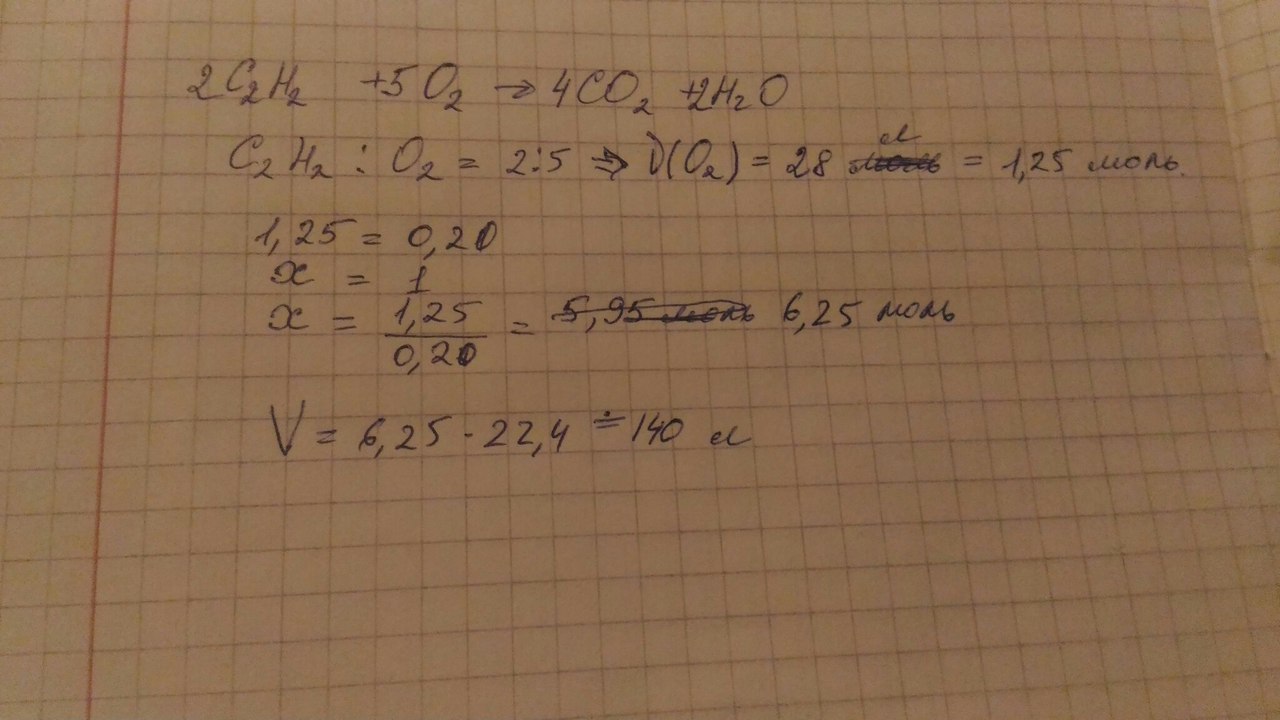 2C₂H₂ +5O₂ → 4CO₂ +2H₂O
C₂H₂ : O₂ = 2:5 ⇒ ν(O₂) = 28 л = 1,25 моль.
1,25 = 0,20
x = 1
x = 1,25/0,20 = 5,95 моль 6,25 моль
V = 6,25 · 22,4 = 140 л